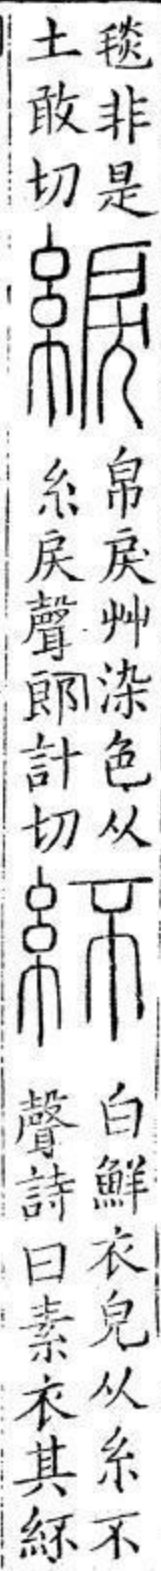 毯非是
土敢切
綟
帛戾艸染色从
糸戾聲郎計切
紑
白鮮衣皃从糸不
聲詩曰素衣其紑